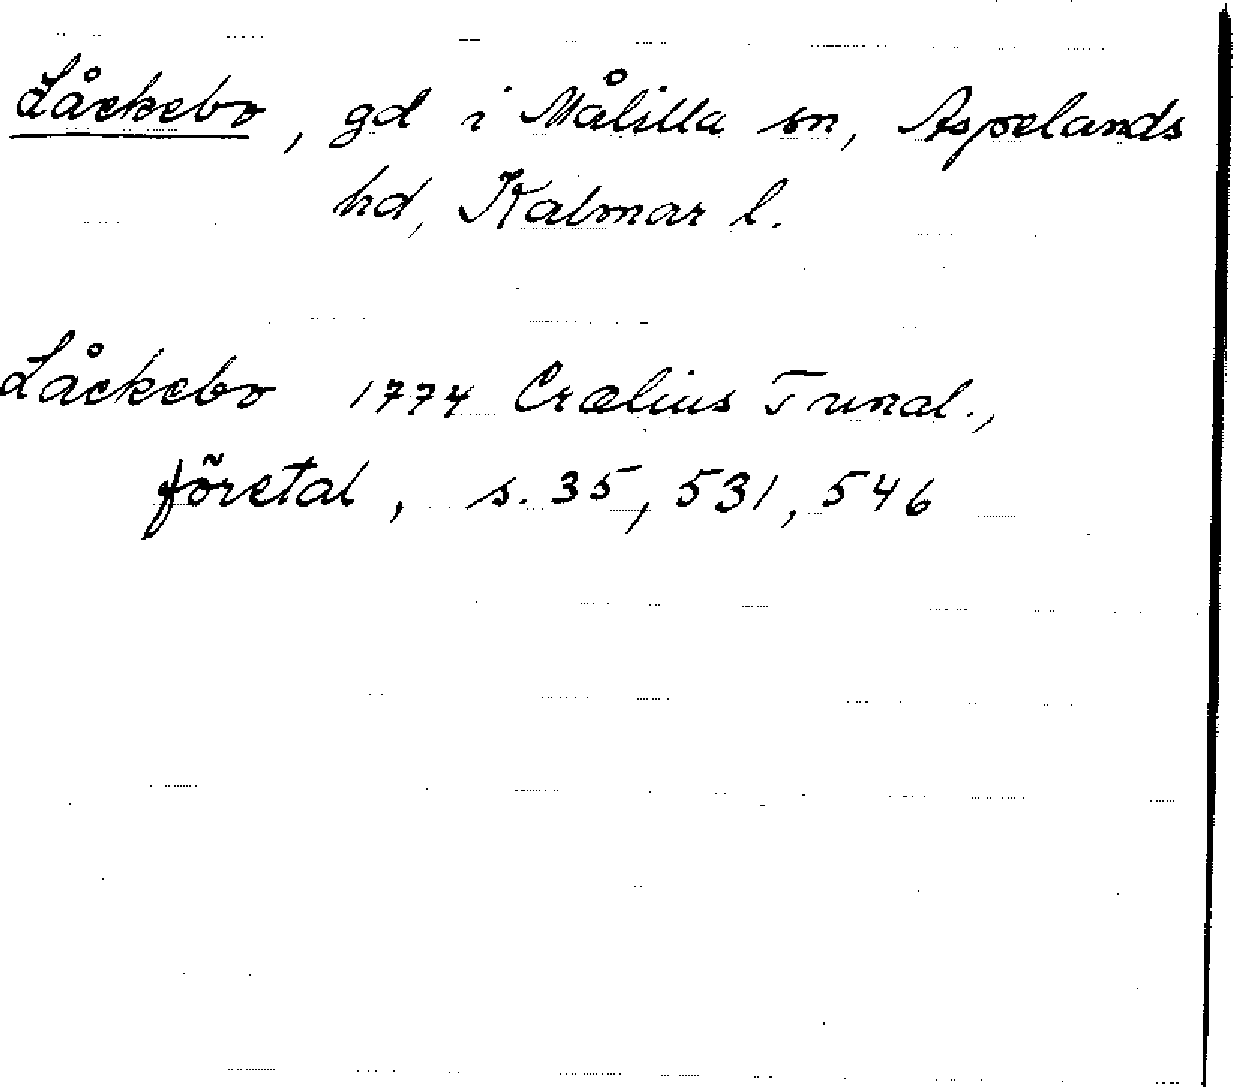 Låckebo, gd i Målilla sn, Aspelands
hd, Kalmar l.
Låckebo 1774 Crælius Tunal.,
företal, s. 35, 531, 546